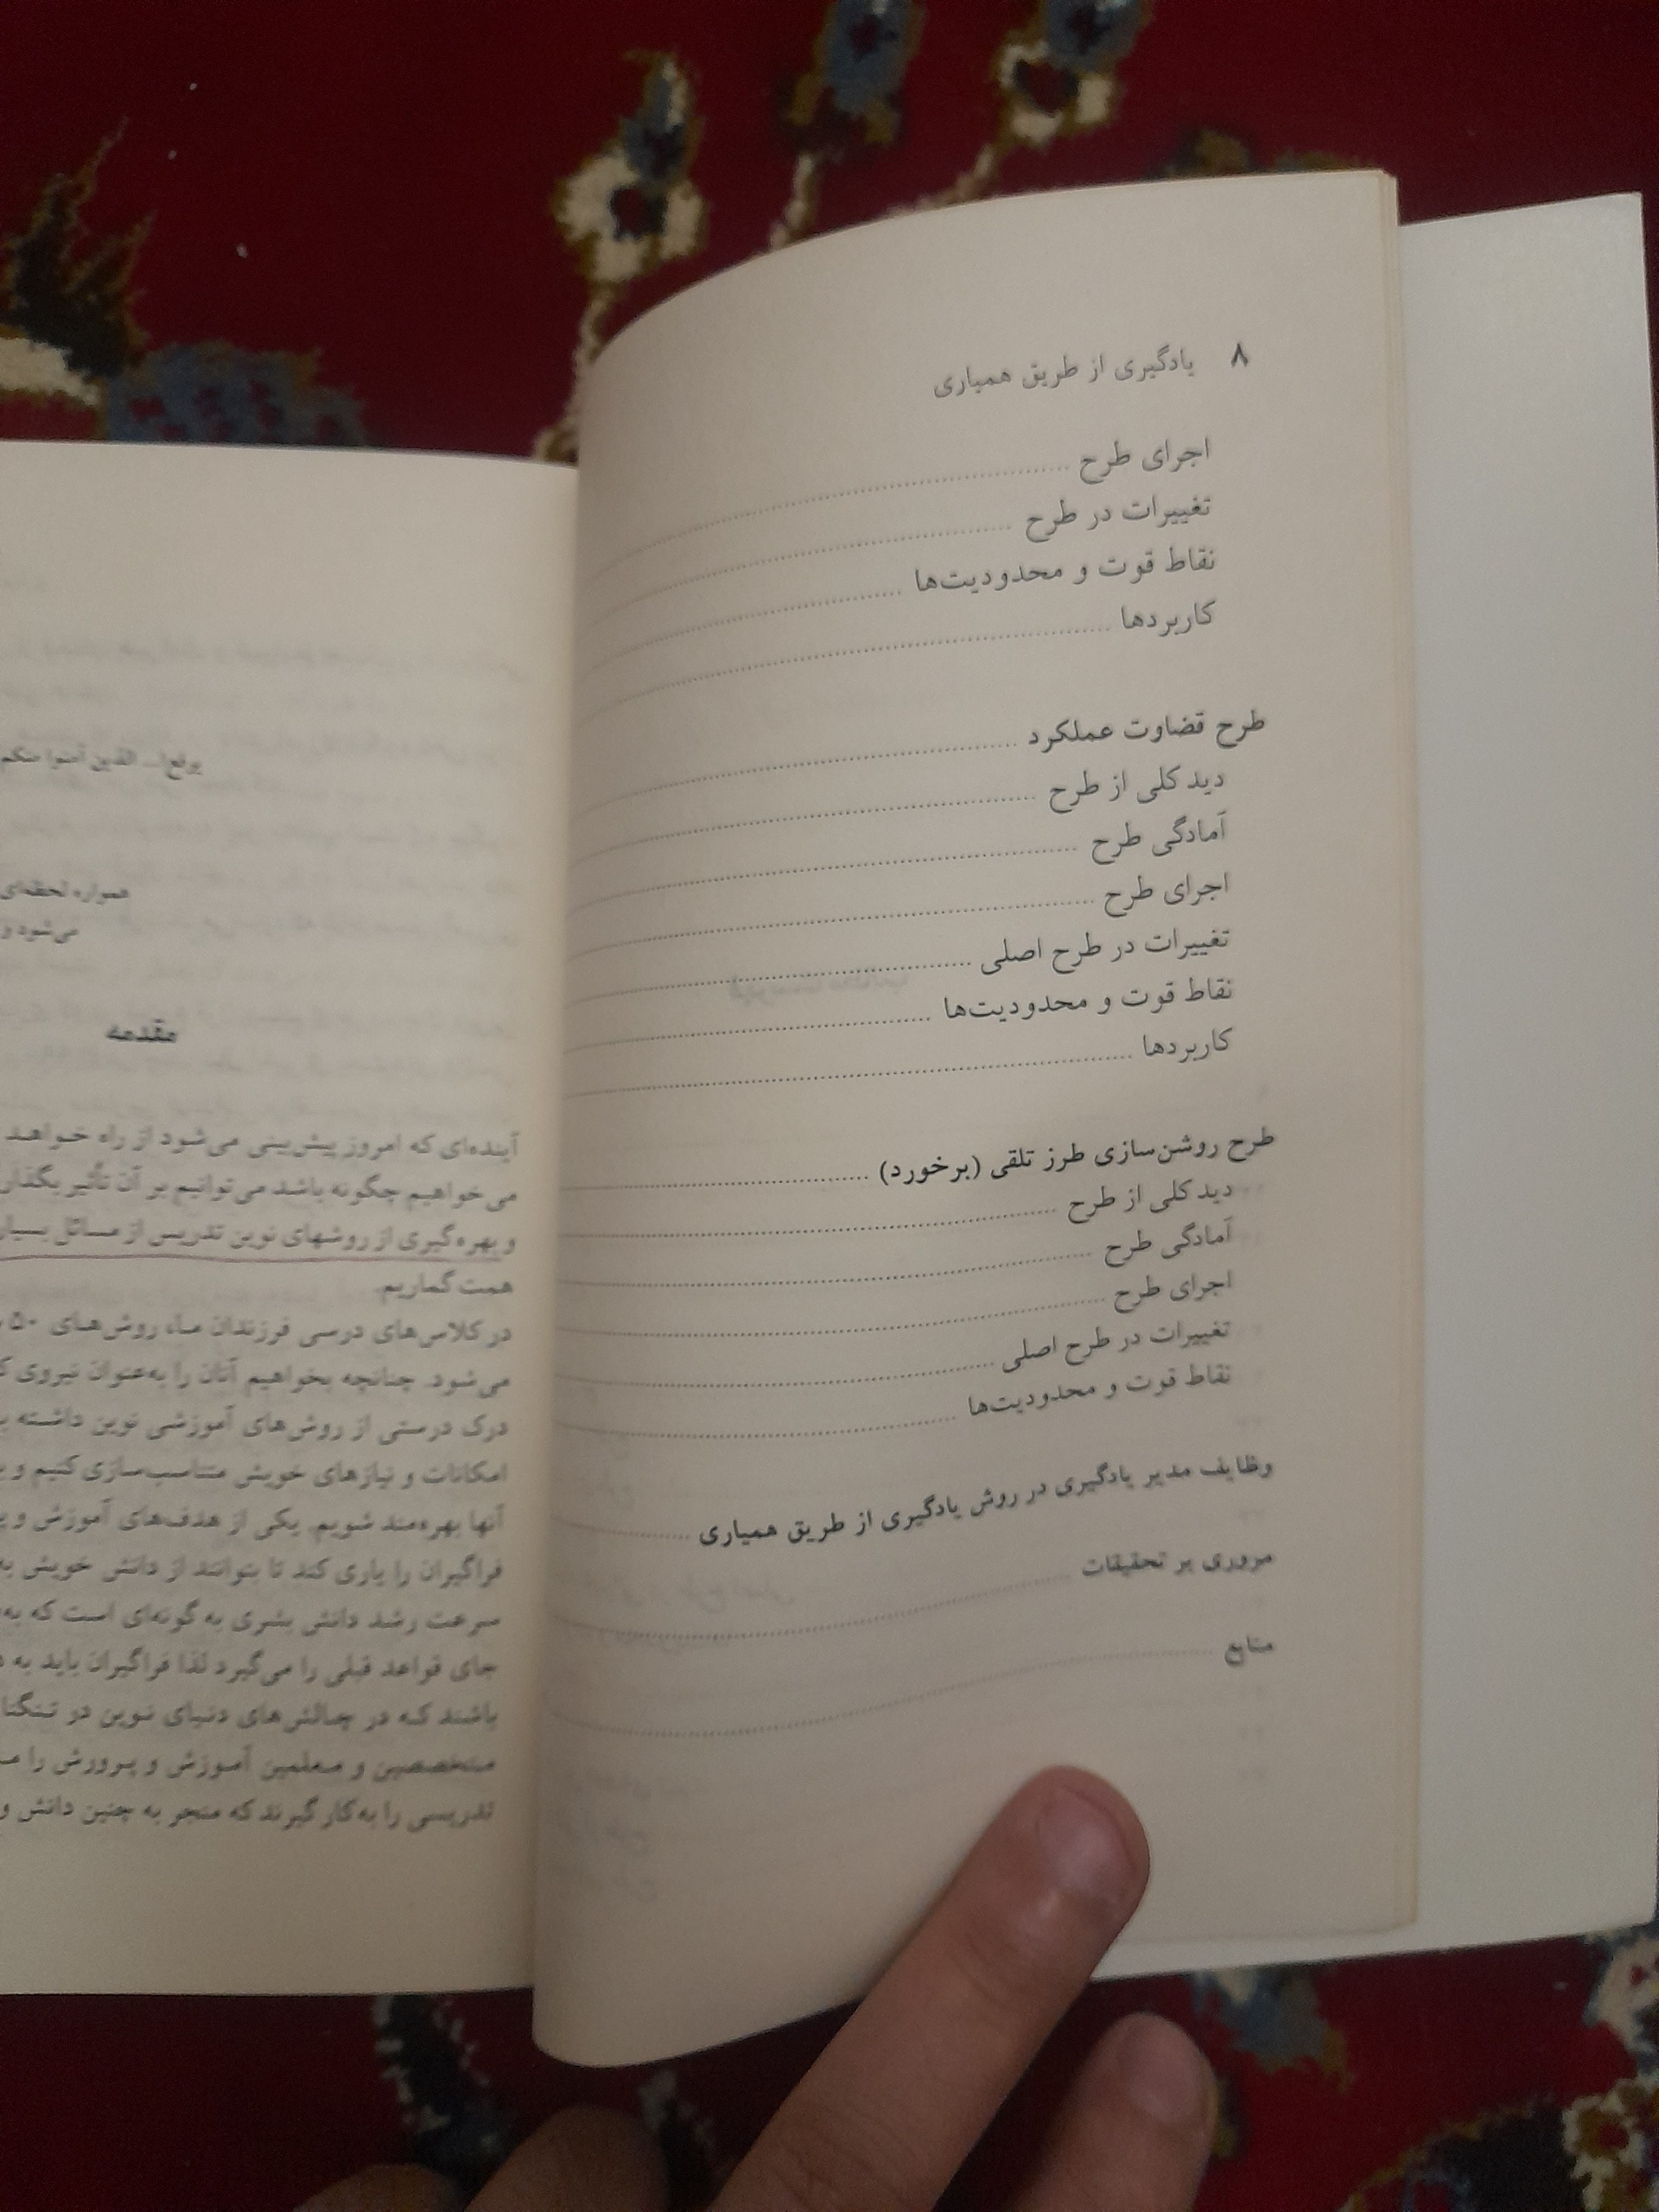 ۸ یادگیری از طریق همیاری
اجرای طرح
تغییرات در طرح
نقاط قوت و محدودیت‌ها
کاربردها
طرح قضاوت عملکرد
دید کلی از طرح
آمادگی طرح
اجرای طرح
تغییرات در طرح اصلی
نقاط قوت و محدودیت‌ها
کاربردها
طرح روشن‌سازی طرز تلقی (برخورد)
دید کلی از طرح
آمادگی طرح
اجرای طرح
تغییرات در طرح اصلی
نقاط قوت و محدودیت‌ها
وظایف مدیر یادگیری در روش یادگیری از طریق همیاری
مروری بر تحقیقات
منابع
یرفع ا... الذین آمنوا منکم
همواره لحظه‌ای
می‌شود و
مقدمه
آینده‌ای که امروز پیش‌بینی می‌شود از راه خواهد
می‌خواهیم چگونه باشد می‌توانیم بر آن تأثیر بگذار
و بهره‌گیری از روشهای نوین تدریس از مسائل بسیار
همت گماریم.
در کلاس‌های درسی فرزندان ما، روش‌های ۵۰
می‌شود. چنانچه بخواهیم آنان را به‌عنوان نیروی
درک درستی از روش‌های آموزشی نوین داشته
امکانات و نیازهای خویش متناسب‌سازی کنیم و
آنها بهره‌مند شویم. یکی از هدف‌های آموزش و
فراگیران را یاری کند تا بتوانند از دانش خویش
سرعت رشد دانش بشری به گونه‌ای است که
جای قواعد قبلی را می‌گیرد لذا فراگیران باید به
باشند که در چالش‌های دنیای نوین در تنگنا
متخصصین و معلمین آموزش و پرورش را
تدریسی را به‌کار گیرند که منجر به چنین دانش و